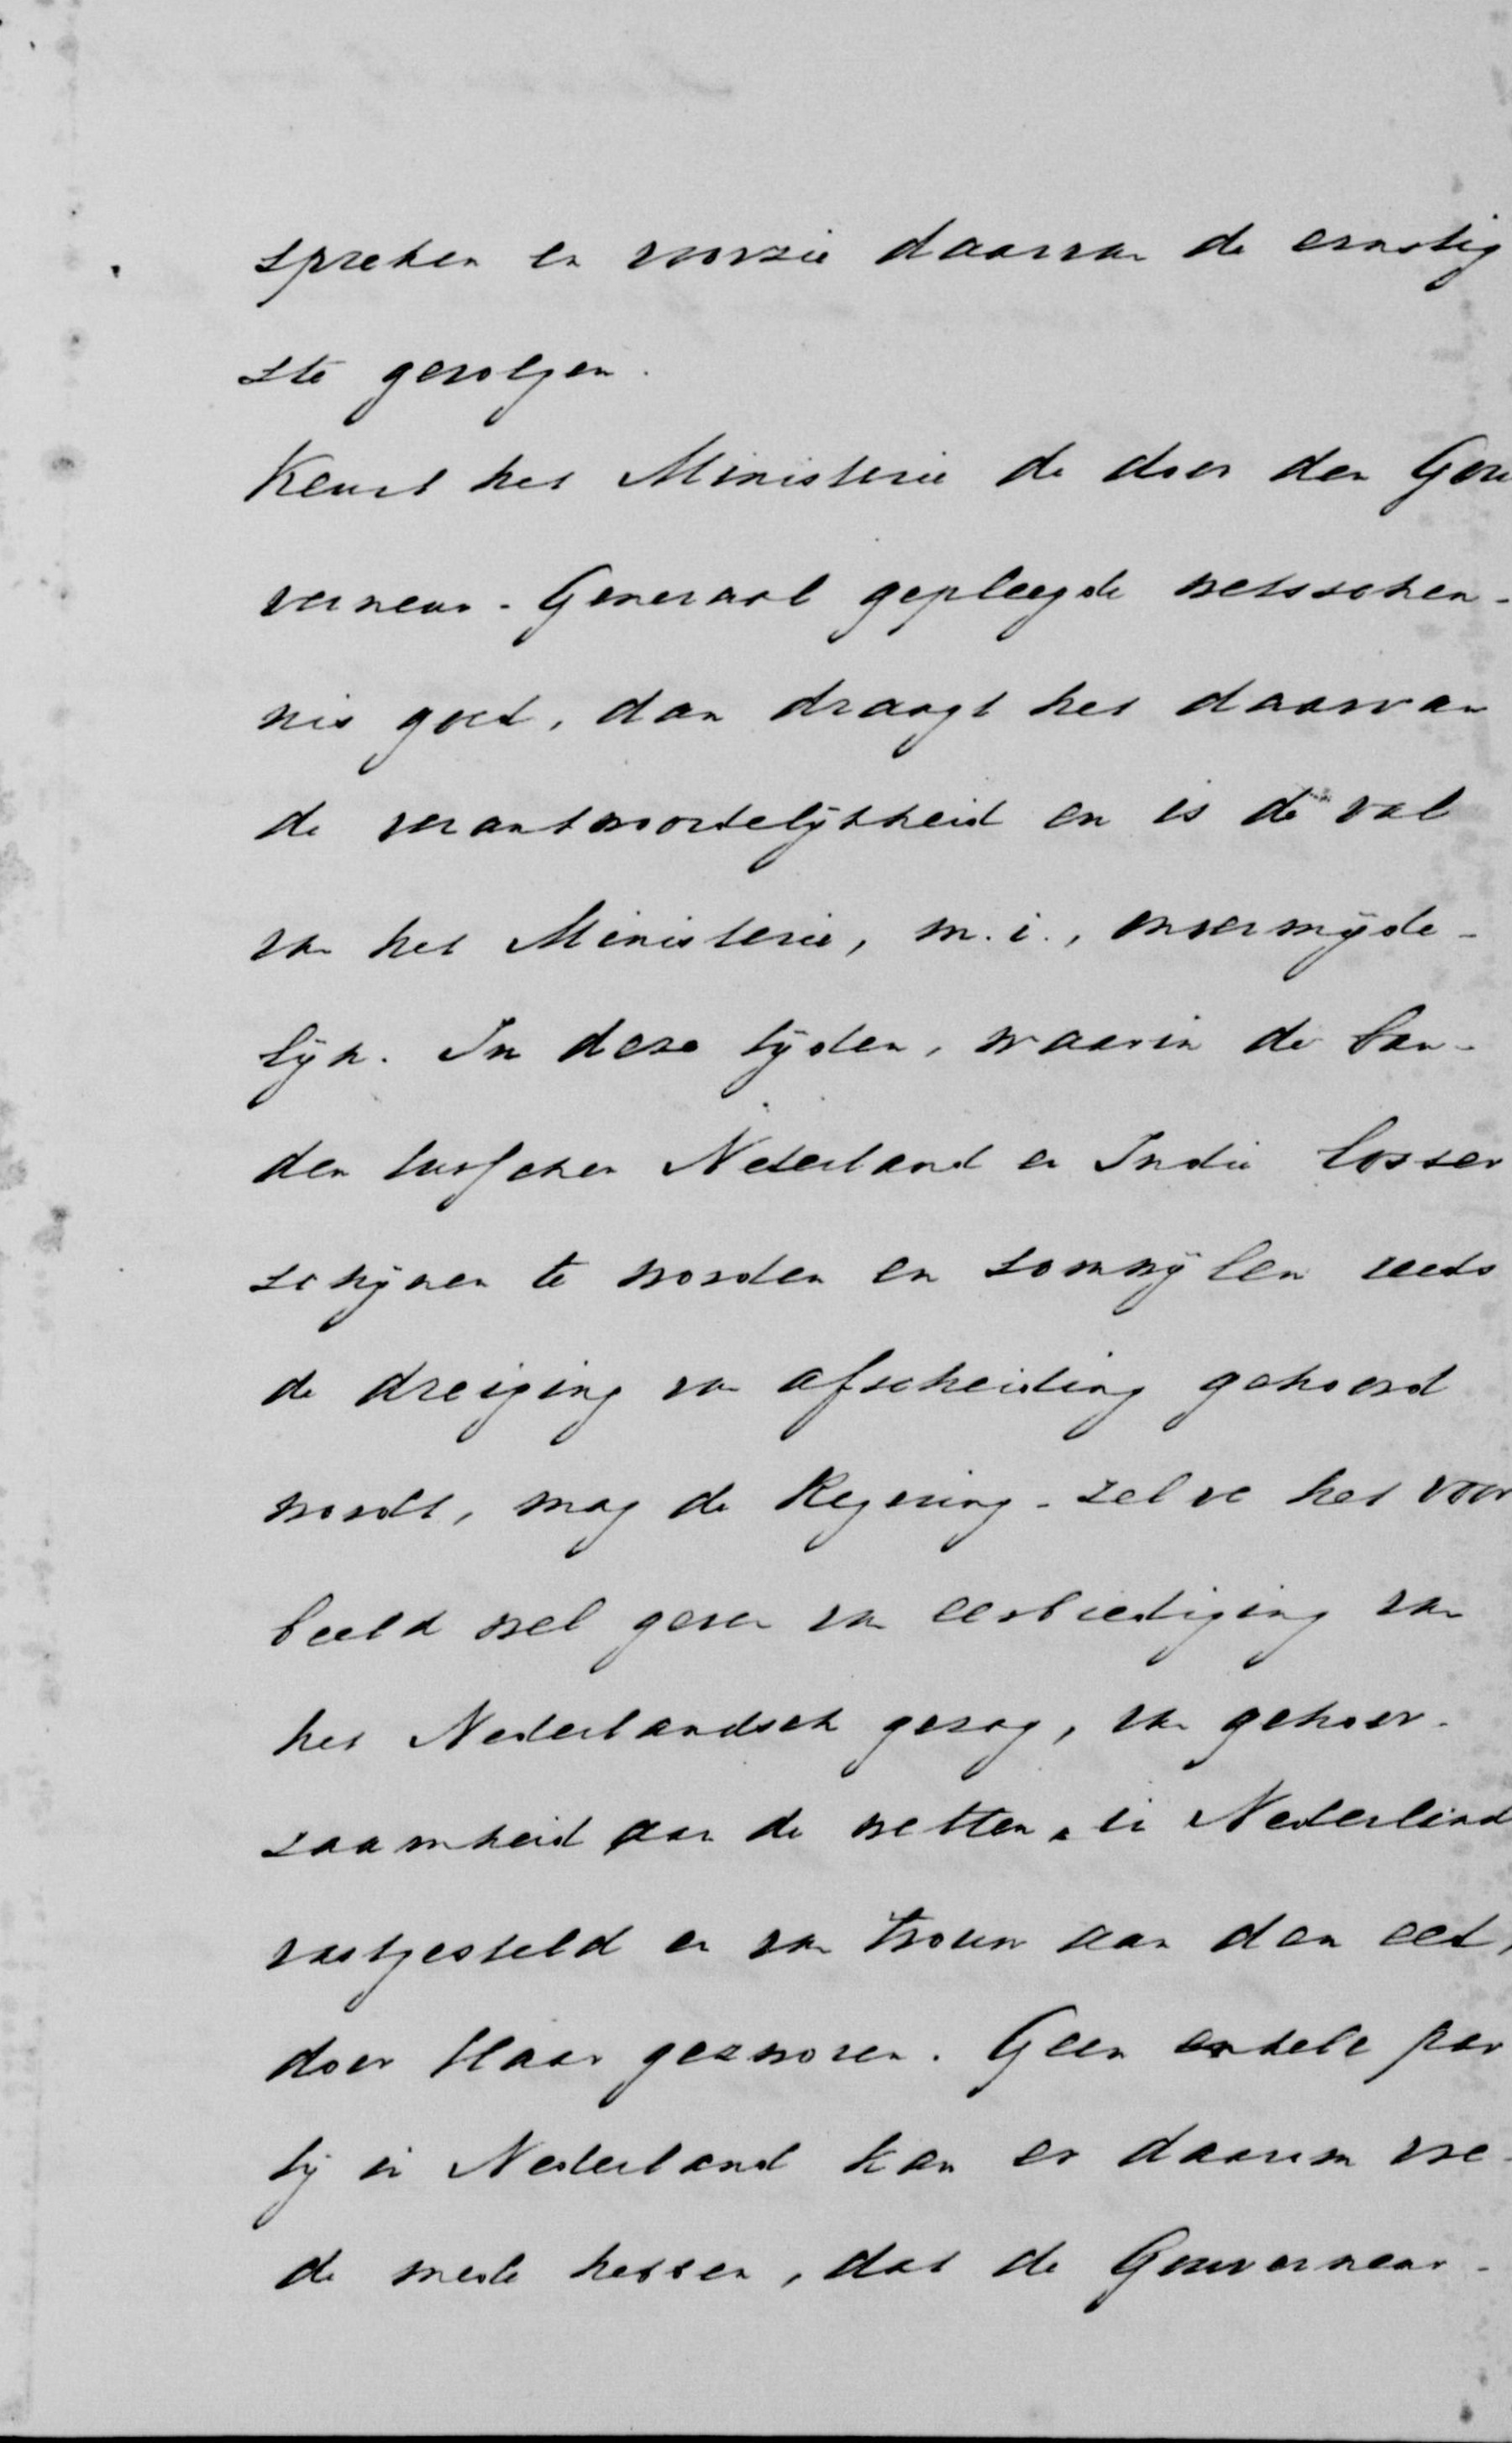 spreken en voorzie daarvan de ernstig
ste gevolgen.
Keurt het Ministerie de door den Gou
verneur-Generaal gepleegde wetsschen-
nis goed, dan draagt het daarvan
de verantwoordelijkheid en is de val
van het Ministerie, m.i., onvermijde-
lijk. In deze tijden, waarin de ban-
den tusschen Nederland en Indië losser
schijnen te worden en somwijlen reeds
de dreiging van afscheiding gehoord
wordt, mag de Regeering-zelve het voor
beeld wel geven van eerbiediging van
het Nederlandsch gezag, van gehoor-
zaamheid aan de wetten, in Nederland
vastgesteld en van trouw aan den eed,
door Haar gezworen. Geen enkele par
tij in Nederland kan er daarom vre-
de mede hebben, dat de Gouverneur-